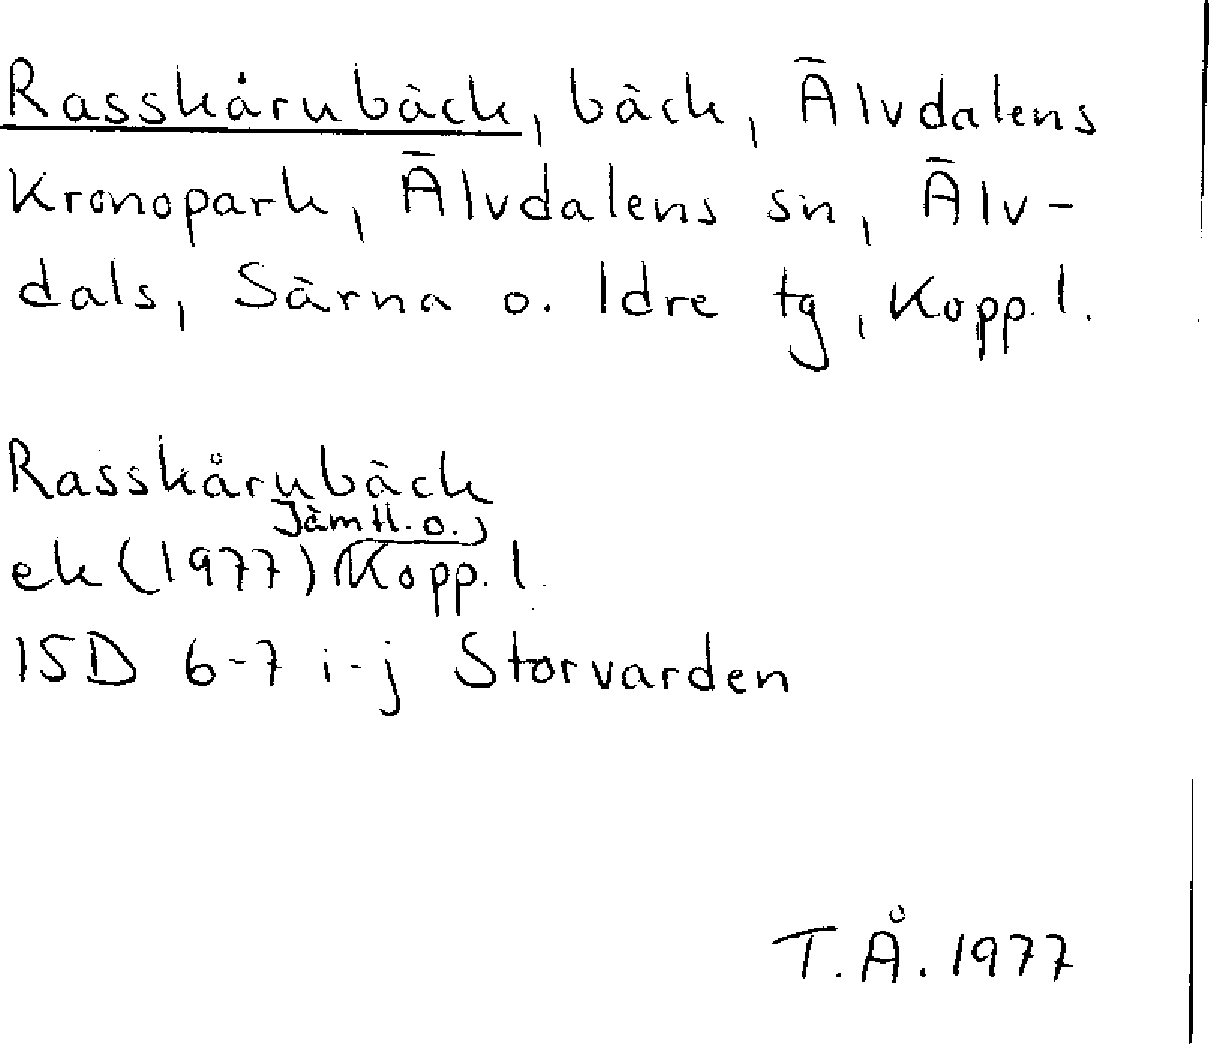 Rasskårubäck, bäck, Älvdalens
Kronopark, Älvdalens sn, Älv-
dals, Särna o. Idre tg, Kopp. l.
Rasskårubäck
Jämtl. o.
ek (1977) Kopp. l.
15D 6-7 i-j Storvarden
T.Å. 1977